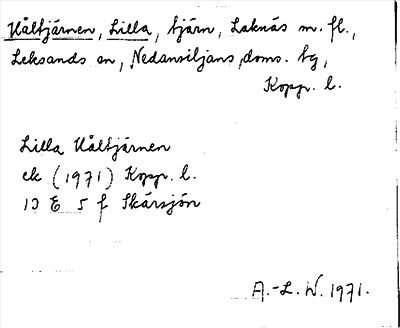 Håltjärnen, Lilla, tjärn, Laknäs m. fl.,
Leksands sn, Nedansiljans doms. tg,
Kopp. l.
Lilla Håltjärnen
ek (1971) Kopp. l.
13 E 5 f Skärsjön
A.-L. W. 1971.